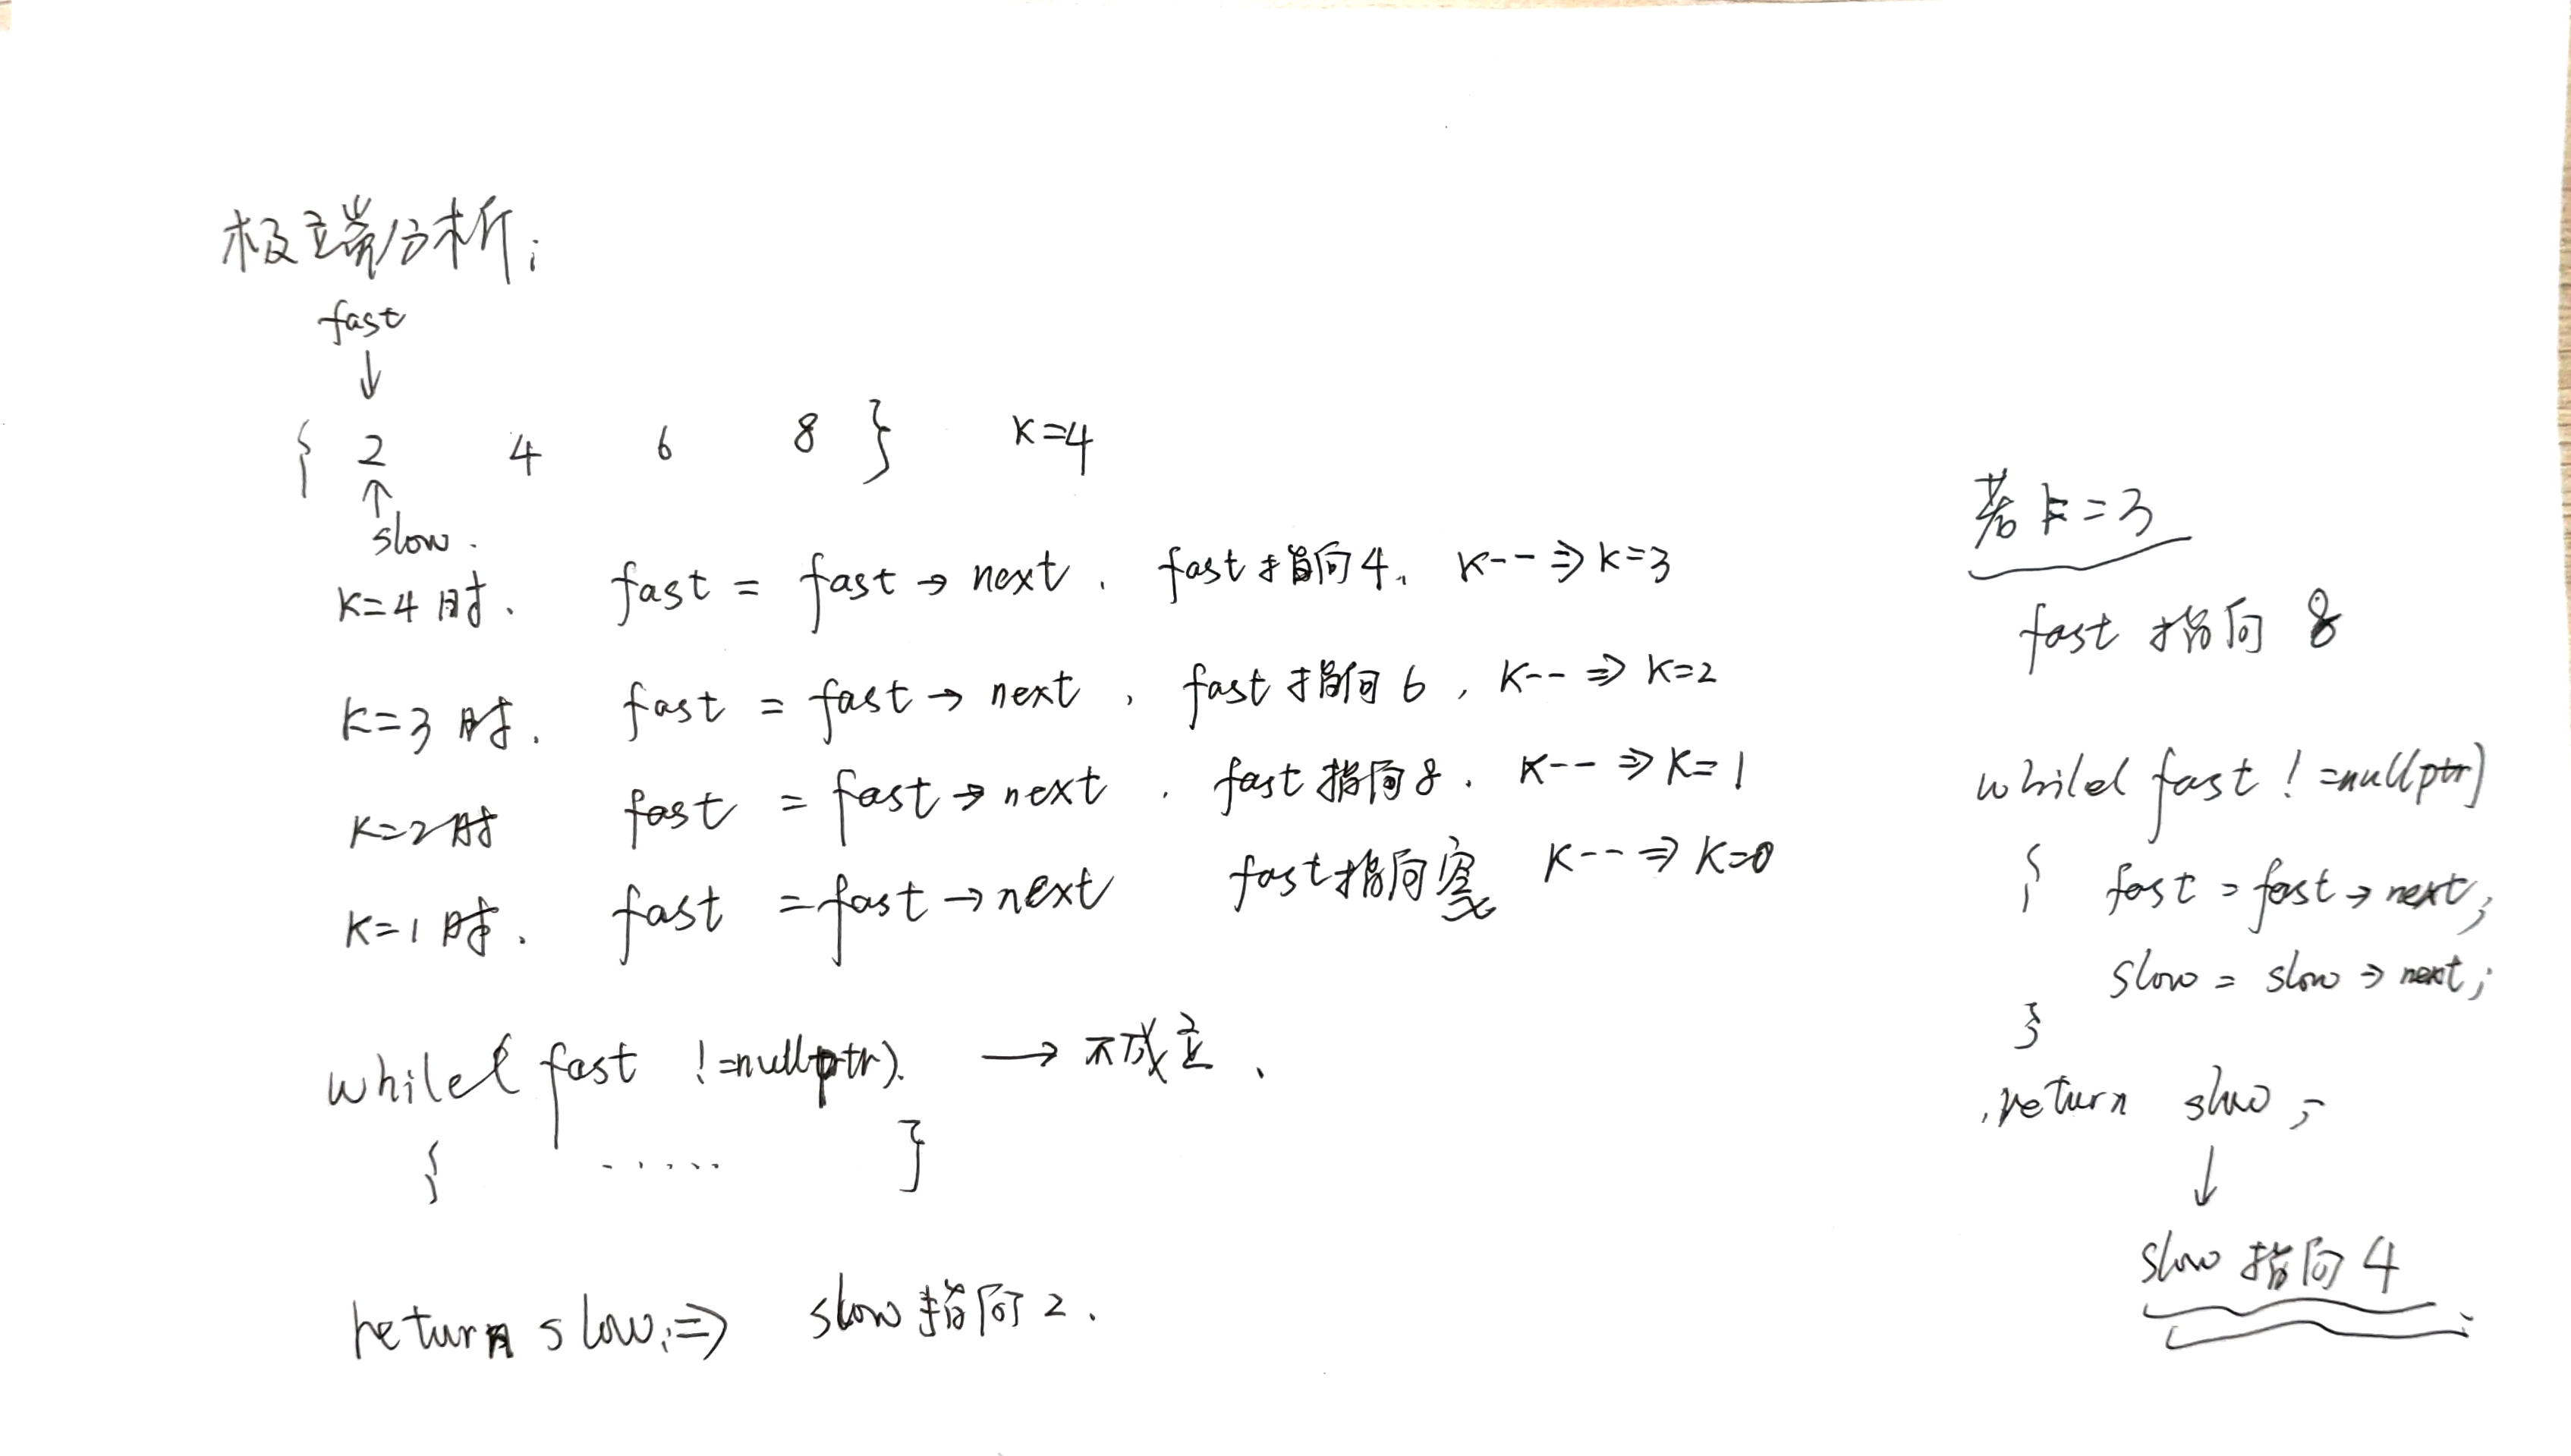 极端分析;
fast
↓
{ 2 4 6 8 } K=4
↑
slow.
K=4时. fast = fast → next . fast指向4. K-- ⇒ K=3
K=3时. fast = fast → next , fast指向6 , K-- ⇒ K=2
K=2时 fast = fast → next . fast指向8. K-- ⇒ K=1
K=1时. fast = fast → next fast指向空 K-- ⇒ K=0
while( fast !=nullptr). → 不成立.
{ ..... }
return slow; ⇒ slow指向2.
若K=3
fast指向8
while( fast !=nullptr)
{ fast = fast → next;
slow = slow → next;
}
return slow;
↓
slow指向4